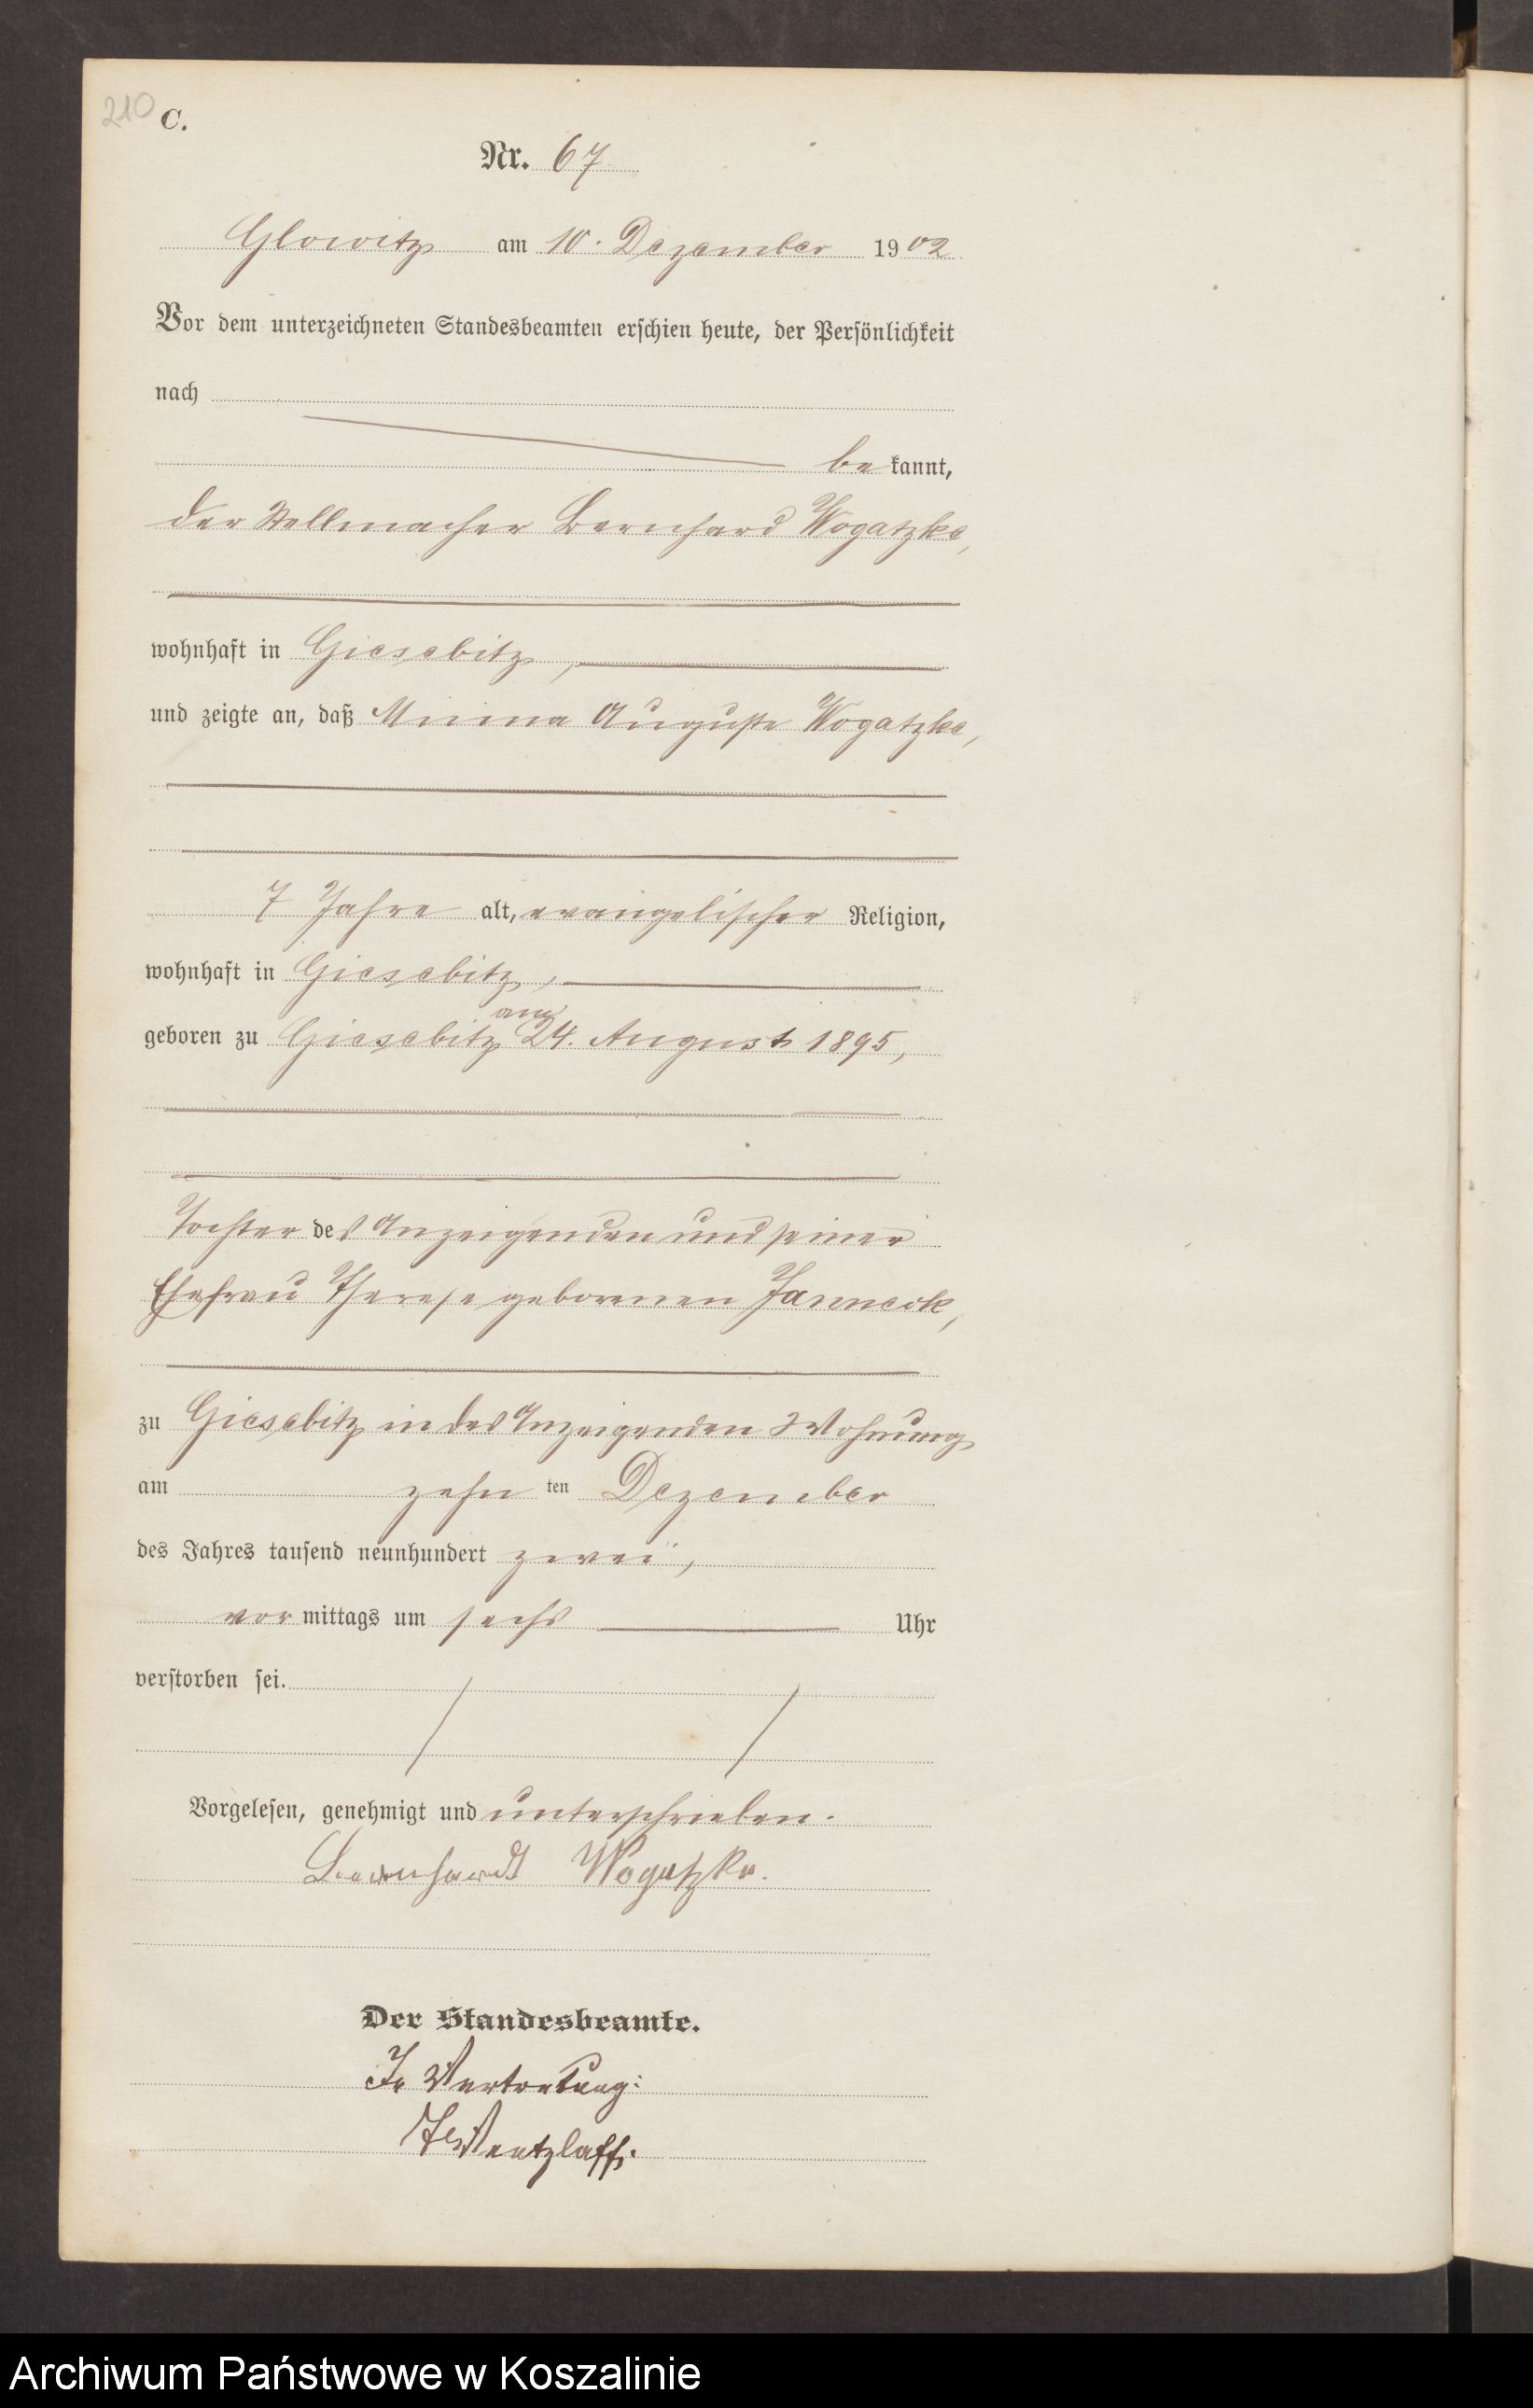 210 C.
Nr. 67
Glowitz am 10. Dezember 1902
Vor dem unterzeichneten Standesbeamten erschien heute, der Persönlichkeit
nach
be kannt,
der Stellmacher Bernhard Wogatzke,
wohnhaft in Giesebitz,
und zeigte an, daß Minna Auguste Wogatzke,
7 Jahre alt, evangelischer Religion,
wohnhaft in Giesebitz,
geboren zu Giesebitz am 24. August 1895,
Tochter des Anzeigenden und seiner
Ehefrau Therese geborenen Janneck,
zu Giesebitz in des Anzeigenden Wohnung
am zehn ten Dezember
des Jahres tausend neunhundert zwei,
vor mittags um sechs Uhr
verstorben sei.
Vorgelesen, genehmigt und unterschrieben.
Bernhardt Wogatzke.
Der Standesbeamte.
In Vertretung:
Wentzlaff.
Archiwum Państwowe w Koszalinie